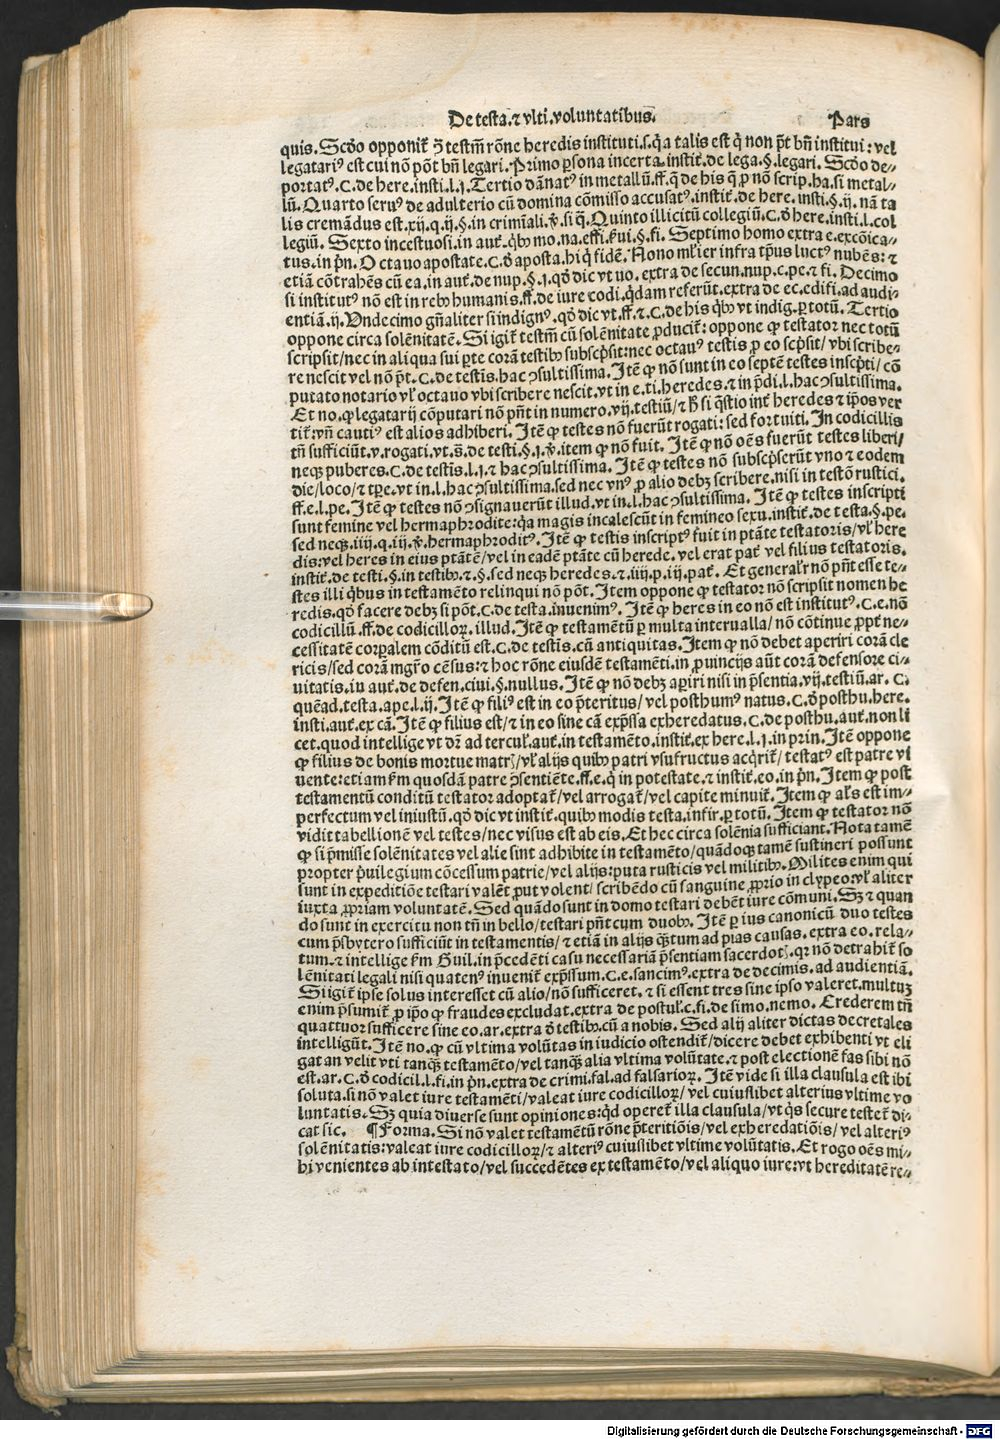 De testa.⁊ vlti.voluntatibus. Pars
quis. Scd̄o opponit̄ ꝫ testm̄ rōne heredis instituti.s.q̇a talis est q̇ non pt̄ bn̄ institui: vel
legatariꝰ est cui nō pōt bn̄ legari. Primo ꝑsona incerta.instit̄.de lega.§.legari. Scd̄o de-
portatꝰ.C.de here.insti.l.j. Tertio dānatꝰ in metallū.ff.q̄ de his q̄ ꝓ nō scrip.ha.si metal-
lū. Quarto seruꝰ de adulterio cū domina cōmisso accusatꝰ.instit̄.de here.insti.§.ij.nā ta
lis cremādus est.xij.q.ij.§.in crimīali.v̄.si q̄. Quinto illicitū collegiū.C.ð here.insti.l.col
legiū. Sexto incestuosi.in aut̄.q̇bꝰ mo.na.effi. §.fi. Septimo homo extra e.excōica-
tus.in pn̄. Octauo apostate.C.ð aposta.hi q̇ fidē. Nono mĺier infra tp̄us luctꝰ nubēs: ⁊
etiā cōtrahēs cū ea.in aut̄.de nup.§.j.qð dic vt uo.extra de secun.nup.c.pe.⁊ fi. Decimo
si institutꝰ nō est in rebꝰ humanis.ff.de iure codi.q̇dam referūt.extra de ec.edifi.ad audi-
entiā.ij. Vndecimo gn̄aliter si indignꝰ.qð dic vt.ff.⁊.C.de his q̇bꝰ vt indig.ꝑ totū. Tertio
oppone circa solēnitatē. Si igit̄ testm̄ cū solēnitate ꝓducit̄: oppone ꝙ testator nec totū
scripsit/nec in aliqua sui ꝑte corā testibꝰ subscṗsit:nec octauꝰ testis ꝓ eo scṗsit/ vbi scribe-
re nescit vel nō pt̄.C.de testīs.hac ↄsultissima. Itē ꝙ nō sunt in eo septē testes inscṗti/ cō
putato notario vĺ octauo vbi scribere nescit.vt in e.ti.heredes.⁊ in p̄di.l.hac ↄsultissima.
Et no.ꝙ legatarij cōputari nō pn̄t in numero.vij.testiū/⁊ h̄ si q̄stio int̄ heredes ⁊ ip̄os ver
tit̄:vn̄ cautiꝰ est alios adhiberi. Itē ꝙ testes nō fuerūt rogati: sed fortuiti. In codicillis
tn̄ sufficiūt.v.rogati.vt.s̄.de testi.§.j.v̄.item ꝙ nō fuit. Itē ꝙ nō oēs fuerūt testes liberi/
neqꝫ puberes.C.de testīs.l.j.⁊ hac ↄsultissima. Itē ꝙ testes nō subscṗserūt vno ⁊ eodem
die/loco/⁊ tꝑe.vt in.l.hac ↄsultissima.sed nec vnꝰ ꝓ alio debꝫ scribere.nisi in testō rustici.
ff.e.l.pe. Itē ꝙ testes nō ↄsignauerūt illud.vt in.l.hac ↄsultissima. Itē ꝙ testes inscripti
sunt femine vel hermaphrodite:q̇a magis incalescūt in femineo sexu.instit̄.de testa.§.pe.
sed neqꝫ.iiij.q.iij.v̄.hermaphroditꝰ. Itē ꝙ testis inscriptꝰ fuit in ptāte testatoris/ vĺ here
dis:vel heres in eius ptātē/vel in eadē ptāte cū herede.vel erat pat̄ vel filius testatoris.
instit̄.de testi.§.in testibꝰ.⁊.§.sed neqꝫ heredes.⁊.iiij.p.iij.pat̄. Et generaĺr nō pn̄t esse te-
stes illi q̇bus in testamēto relinqui nō pōt. Item oppone ꝙ testator nō scripsit nomen he
redis.qð facere debꝫ si pōt.C.de testa.inuenimꝰ. Itē ꝙ heres in eo nō est institutꝰ.C.e.nō
codicillū.ff.de codicilloꝝ.illud. Itē ꝙ testamētū ꝑ multa interualla/ nō cōtinue ꝓpt̄ ne-
cessitatē corꝑalem cōditū est.C.de testīs.cū antiquitas. Item ꝙ nō debet aperiri corā cle
ricis/sed corā mgr̄o cēsus:⁊ hoc rōne eiusdē testamēti.in ꝓuincijs aūt corā defensore ci-
uitatis.in aut̄.de defen.ciui.§.nullus. Itē ꝙ nō debꝫ aꝑiri nisi in p̄sentia.vij.testiū.ar. C.
quēad.testa.ape.l.ij. Itē ꝙ filiꝰ est in eo p̄teritus/ vel posthumꝰ natus.C.ð posthu.here.
insti.aut̄.ex cā. Itē ꝙ filius est/⁊ in eo sine cā exp̄ssa exheredatus.C.de posthu.aut̄.non li
cet.quod intellige vt dr̄.ad tercuĺ.aut̄.in testamēto.instit̄.ex here.l.j.in prin. Itē oppone
ꝙ filius de bonis mortue matrꝭ/vĺ alijs quibꝰ patri vsufructus acq̇rit̄/ testatꝰ est patre vi
uente:etiam ẜm quosdā patre ↄsentiēte.ff.e.q̇ in potestate.⁊ instit̄.eo.in pn̄. Item ꝙ post
testamentū conditū testator adoptat̄/vel arrogat̄/vel capite minuit̄. Item ꝙ aĺs est im-
perfectum vel iniustū.qð dic vt instit̄.quibꝰ modis testa.infir.ꝑ totū. Item ꝙ testator nō
vidit tabellionē vel testes/nec visus est ab eis. Et hec circa solēnia sufficiant. Nota tamē
ꝙ si p̄misse solēnitates vel alie sint adhibite in testamēto/quādoqꝫ tamē sustineri possunt
propter p̄uilegium cōcessum patrie/vel alijs:puta rusticis vel militibꝰ. Milites enim qui
sunt in expeditiōe testari valēt ꝓut volent/ scribēdo cū sanguine ꝓprio in clypeo:vĺ aliter
iuxta ꝓpriam voluntatē. Sed quādo sunt in domo testari debēt iure cōmuni. Sꝫ ⁊ quan
do sunt in exercitu non tn̄ in bello/testari pn̄t cum duobꝰ. Itē ꝑ ius canonicū duo testes
cum p̄sbytero sufficiūt in testamentis/ ⁊ etiā in alijs qꝫtum ad pias causas.extra eo.rela-
tum.⁊ intellige ẜm Guil.in p̄cedēti casu necessariā p̄sentiam sacerdotꝭ.qꝛ nō detrahit̄ so
lēnitati legali nisi quatenꝰ inuenit̄ exp̄ssum.C.e.sancimꝰ.extra de decimis.ad audientiā.
Si igit̄ ipse solus interesset cū alio/nō sufficeret.⁊ si essent tres sine ipso valeret.multuꝫ
enim p̄sumit̄ ꝓ ip̄o ꝙ fraudes excludat.extra de postuĺ.c.fi.de simo.nemo. Crederem tn̄
quattuor sufficere sine eo.ar.extra ð testibꝰ.cū a nobis. Sed alij aliter dictas decretales
intelligūt. Itē no.ꝙ cū vltima volūtas in iudicio ostendit̄/dicere debet exhibenti vt eli
gat an velit vti tanqꝫ testamēto/vel tanqꝫ alia vltima volūtate.⁊ post electionē fas sibi nō
est.ar.C.ð codicil.l.fi.in pn̄.extra de crimi.fal.ad falsarioꝝ. Itē vide si illa clausula est ibi
soluta.si nō valet iure testamēti/valeat iure codicilloꝝ/ vel cuiuslibet alterius vltime vo
luntatis. Sꝫ quia diuerse sunt opiniones:q̇d operet̄ illa clausula/vt q̇s secure testet̄ di-
cat sic. ¶Forma. Si nō valet testamētū rōne p̄teritiōis/vel exheredatiōis/ vel alteriꝰ
solēnitatis:valeat iure codicilloꝝ/⁊ alteriꝰ cuiuslibet vltime volūtatis. Et rogo oēs mi-
hi venientes ab intestato/vel succedētes ex testamēto/vel aliquo iure:vt hereditatē re-
Digitalisierung gefördert durch die Deutsche Forschungsgemeinschaft - DFG